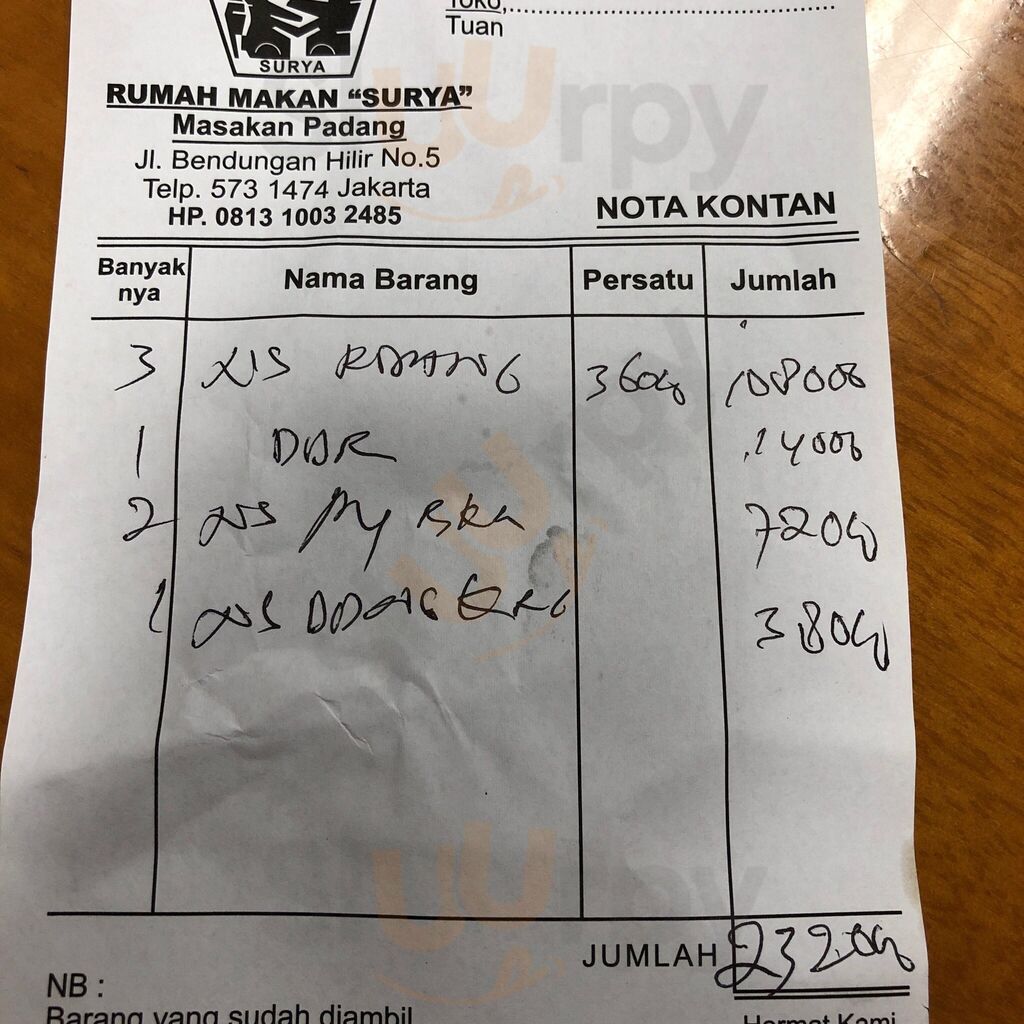 SURYA
Toko,
Tuan
RUMAH MAKAN “SURYA”
Masakan Padang
Jl. Bendungan Hilir No.5
Telp. 573 1474 Jakarta
HP. 0813 1003 2485
NOTA KONTAN
Banyak nya Nama Barang Persatu Jumlah
3 NS 36000 108000
1 14000
2 NS 72000
1 NS 38000
JUMLAH 232000
NB :
Barang yang sudah diambil
Hormat Kami